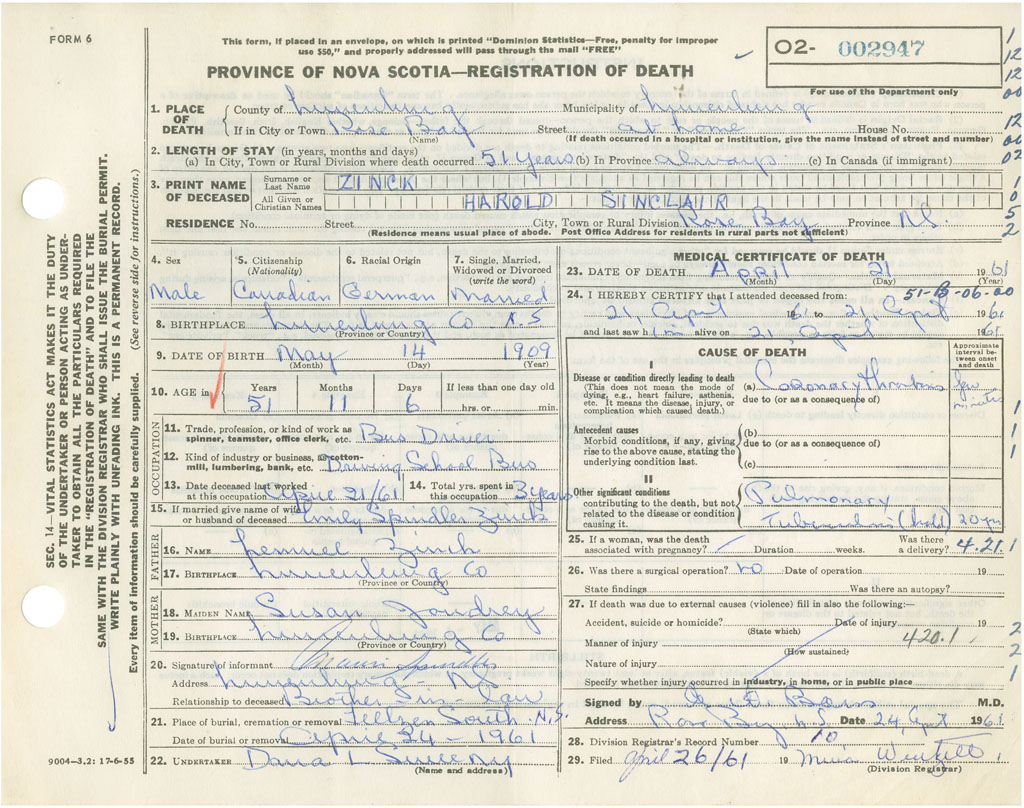 FORM 6
This form, if placed in an envelope, on which is printed "Dominion Statistics—Free, penalty for improper
use $50," and properly addressed will pass through the mail "FREE"
O2- 002947
PROVINCE OF NOVA SCOTIA—REGISTRATION OF DEATH
For use of the Department only
1. PLACE OF DEATH
County of Lunenburg Municipality of Lunenburg
If in City or Town Rose Bay Street at home House No.
(Name) (If death occurred in a hospital or institution, give the name instead of street and number)
2. LENGTH OF STAY (in years, months and days)
(a) In City, Town or Rural Division where death occurred 51 years (b) In Province always (c) In Canada (if immigrant)
3. PRINT NAME OF DECEASED
Surname or Last Name ZINCK
All Given or Christian Names HAROLD SINCLAIR
RESIDENCE No. Street City, Town or Rural Division Rose Bay Province N.S.
(Residence means usual place of abode. Post Office Address for residents in rural parts not sufficient)
4. Sex
Male
5. Citizenship (Nationality)
Canadian
6. Racial Origin
German
7. Single, Married, Widowed or Divorced (write the word)
Married
8. BIRTHPLACE Lunenburg Co N.S
(Province or Country)
9. DATE OF BIRTH May 14 1909
(Month) (Day) (Year)
10. AGE in
Years Months Days If less than one day old
51 11 6 hrs. or min.
OCCUPATION
11. Trade, profession, or kind of work as
spinner, teamster, office clerk, etc. Bus Driver
12. Kind of industry or business, as cotton-
mill, lumbering, bank, etc. Driving School Bus
13. Date deceased last worked
at this occupation April 21/61
14. Total yrs. spent in
this occupation 3 years
15. If married give name of wife
or husband of deceased Emily Spindler Zinck
FATHER
16. NAME Lemuel Zinck
17. BIRTHPLACE Lunenburg Co
(Province or Country)
MOTHER
18. MAIDEN NAME Susan Joudrey
19. BIRTHPLACE Lunenburg Co
(Province or Country)
20. Signature of informant Spindler
Address Lunenburg - N.S
Relationship to deceased Brother in law
21. Place of burial, cremation or removal Feltzen South N.S.
Date of burial or removal April 24 - 1961
22. UNDERTAKER Dana L Sweeny
(Name and address)
9004—3.2: 17-6-55
MEDICAL CERTIFICATE OF DEATH
23. DATE OF DEATH April 21 1961
(Month) (Day) (Year)
24. I HEREBY CERTIFY that I attended deceased from: 51-B-06-00
21, April 1961 to 21, April 1961
and last saw him alive on 21, April 1961
CAUSE OF DEATH
Approximate interval between onset and death
I
Disease or condition directly leading to death
(This does not mean the mode of dying, e.g., heart failure, asthenia, etc. It means the disease, injury, or complication which caused death.)
(a) Coronary thrombosis few minutes
due to (or as a consequence of)
Antecedent causes
Morbid conditions, if any, giving rise to the above cause, stating the underlying condition last.
(b)
due to (or as a consequence of)
(c)
II
Other significant conditions
contributing to the death, but not related to the disease or condition causing it.
Pulmonary
Tuberculosis (held) 20 yrs
25. If a woman, was the death
associated with pregnancy? Duration weeks. Was there a delivery? 4.21.1
26. Was there a surgical operation? no Date of operation
State findings Was there an autopsy?
27. If death was due to external causes (violence) fill in also the following:—
Accident, suicide or homicide? Date of injury
(State which)
Manner of injury 420.1
(How sustained)
Nature of injury
Specify whether injury occurred in industry, in home, or in public place
Signed by M.D.
Address Rose Bay N.S. Date 24, April 1961
28. Division Registrar's Record Number 10
29. Filed April 26/61 19
(Division Registrar)
SEC. 14—VITAL STATISTICS ACT MAKES IT THE DUTY
OF THE UNDERTAKER OR PERSON ACTING AS UNDER-
TAKER TO OBTAIN ALL THE PARTICULARS REQUIRED
IN THE "REGISTRATION OF DEATH" AND TO FILE THE
SAME WITH THE DIVISION REGISTRAR WHO SHALL ISSUE THE BURIAL PERMIT.
WRITE PLAINLY WITH UNFADING INK. THIS IS A PERMANENT RECORD.
Every item of information should be carefully supplied. (See reverse side for instructions.)